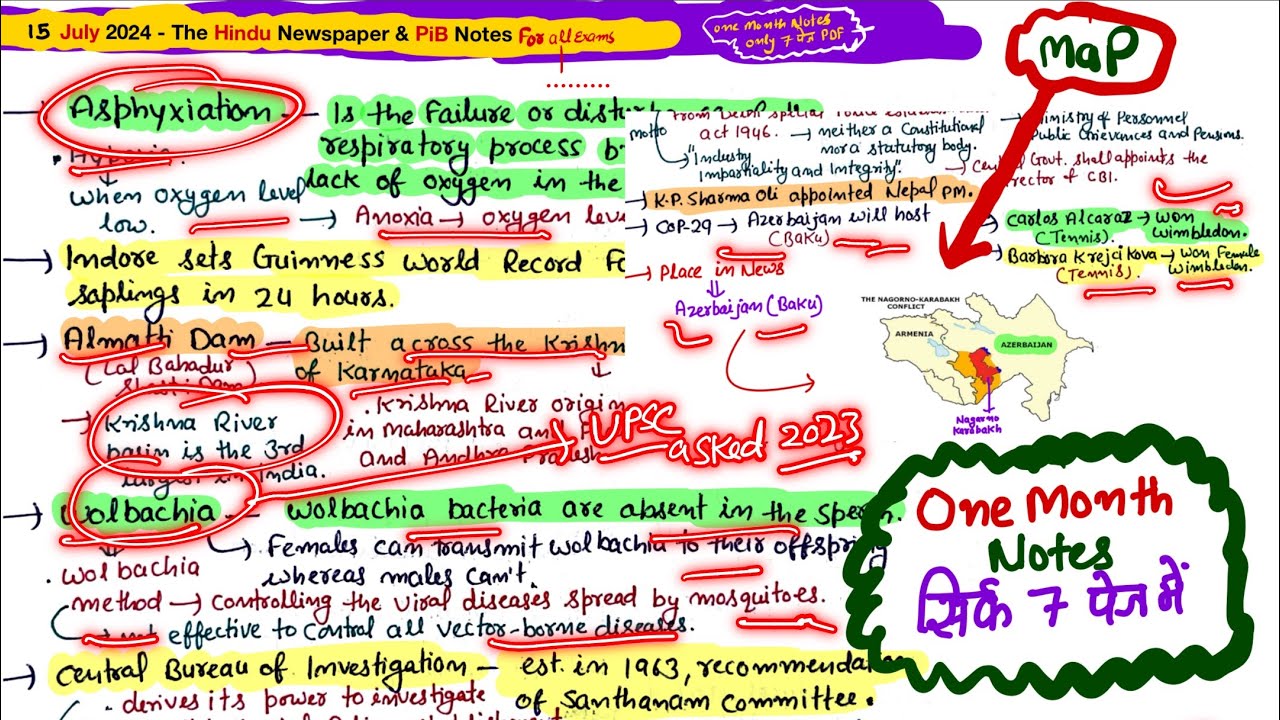 15 July 2024 - The Hindu Newspaper & PiB Notes For all Exams
One Month Notes
only 7 पेज PDF
MaP
Asphyxiation - Is the Failure or
respiratory process
lack of oxygen in the
when oxygen level
low.
→ Anoxia → oxygen
→ Indore sets Guinness World Record
saplings in 24 hours.
→ Almatti Dam - Built across the
of Karnataka
(Lal Bahadur
→ Krishna River
basin is the 3rd
India.
. Krishna River
in Maharashtra and
and Andhra Pradesh
UPSC
asked 2023
→ Wolbachia - Wolbachia bacteria are absent in the
↳ Females can transmit wolbachia to their offspring
whereas males can't.
. wolbachia
method → controlling the viral diseases spread by mosquitoes.
effective to control all vector-borne diseases.
→ Central Bureau of Investigation - est. in 1963,
of Santhanam Committee.
. derives its power to investigate
motto
act 1946. → neither a Constitutional
nor a statutory body.
"Industry
Impartiality and Integrity".
→ K.P. Sharma Oli appointed Nepal PM.
→ CoP-29 → Azerbaijan will host
(Baku)
→ Place in News
Azerbaijan (Baku)
Ministry of Personnel
Public Grievances and Pensions.
Govt. shall appoints the
of CBI.
→ Carlos Alcaraz → won
(Tennis). Wimbledon.
→ Barbora Krejcikova → won Female
(Tennis). Wimbledon.
THE NAGORNO-KARABAKH
CONFLICT
ARMENIA
AZERBAIJAN
Nagorno
Karabakh
One Month
Notes
सिर्फ 7 पेज में